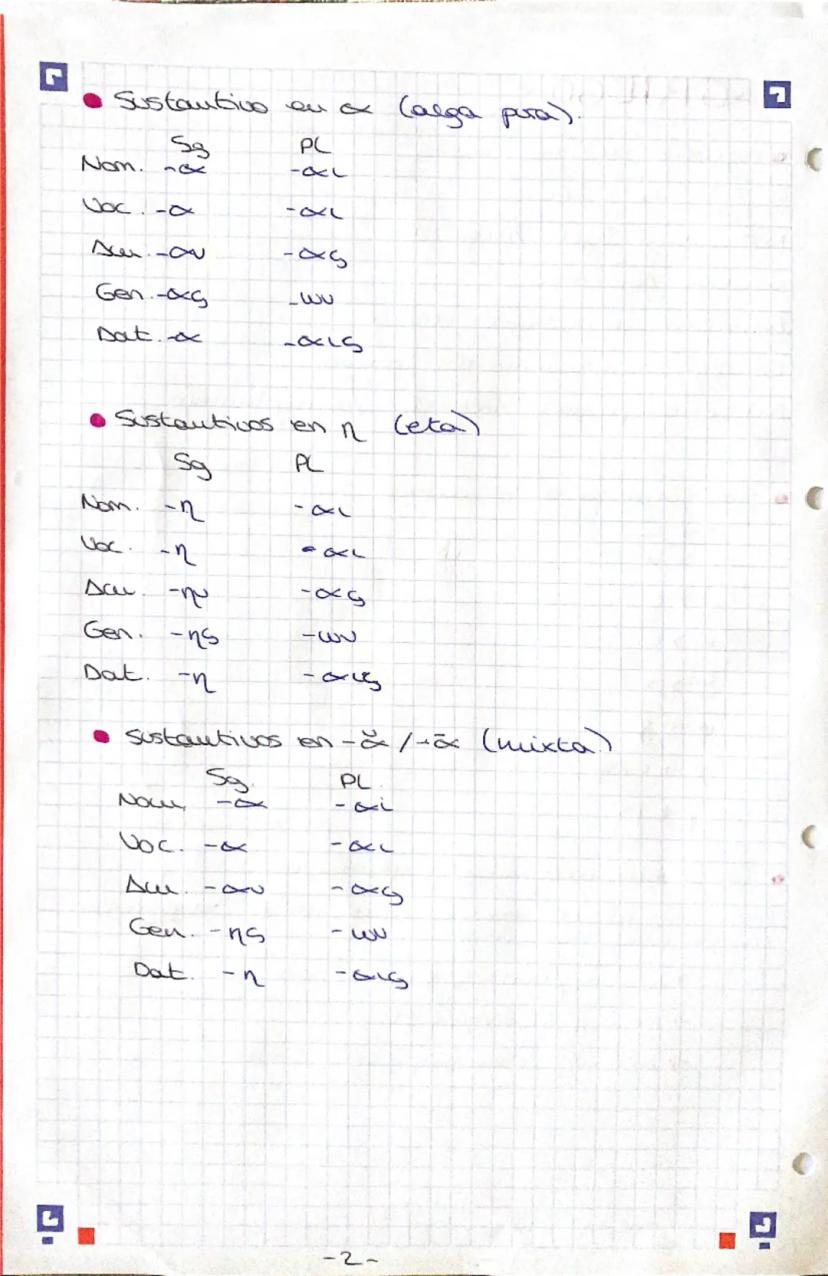 Sustantivo en α (alga pura).
Sg PL
Nom. -α -αι
Voc. -α -αι
Acu. -αν -ας
Gen. -ας -ων
Dat. -α -αις
Sustantivos en η (eta)
Sg PL
Nom. -η -αι
Voc. -η -αι
Acu. -ην -ας
Gen. -ης -ων
Dat. -η -αις
Sustantivos en -ᾰ / -ᾱ (mixta)
Sg. PL.
Nom. -α -αι
Voc. -α -αι
Acu. -αν -ας
Gen. -ης -ων
Dat. -η -αις
-2-